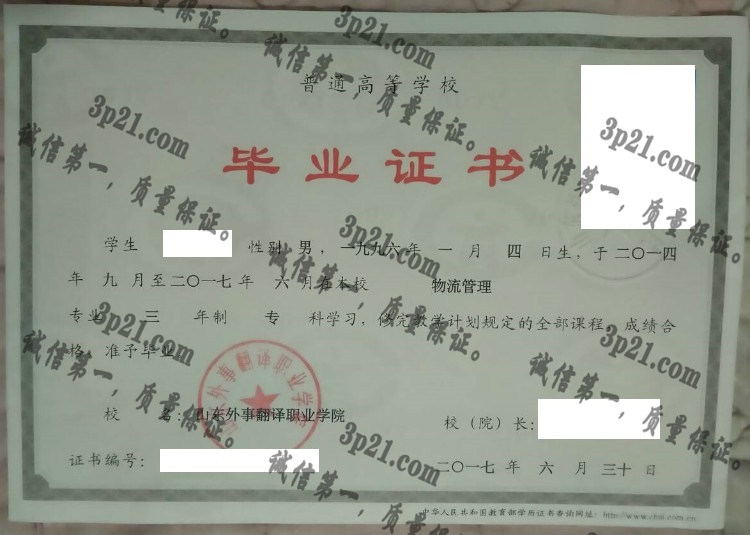 普通高等学校
毕业证书
学生 性别 男，一九九六年 一 月 四 日生，于二〇一四
年 九 月至二〇一七年 六 月在本校 物流管理
专业 三 年制 专 科学习，修完教学计划规定的全部课程，成绩合
格，准予毕业
校 名：山东外事翻译职业学院
校（院）长：
证书编号：
二〇一七 年 六 月 三十 日
中华人民共和国教育部学历证书查询网址：http://www.chsi.com.cn
山东外事翻译职业学院
3p21.com
诚信第一，质量保证。
3p21.com
诚信第一，质量保证。
3p21.com
诚信第一，质量保证。
3p21.com
诚信第一，质量保证。
3p21.com
诚信第一，质量保证。
3p21.com
诚信第一，质量保证。
3p21.com
诚信第一，质量保证。